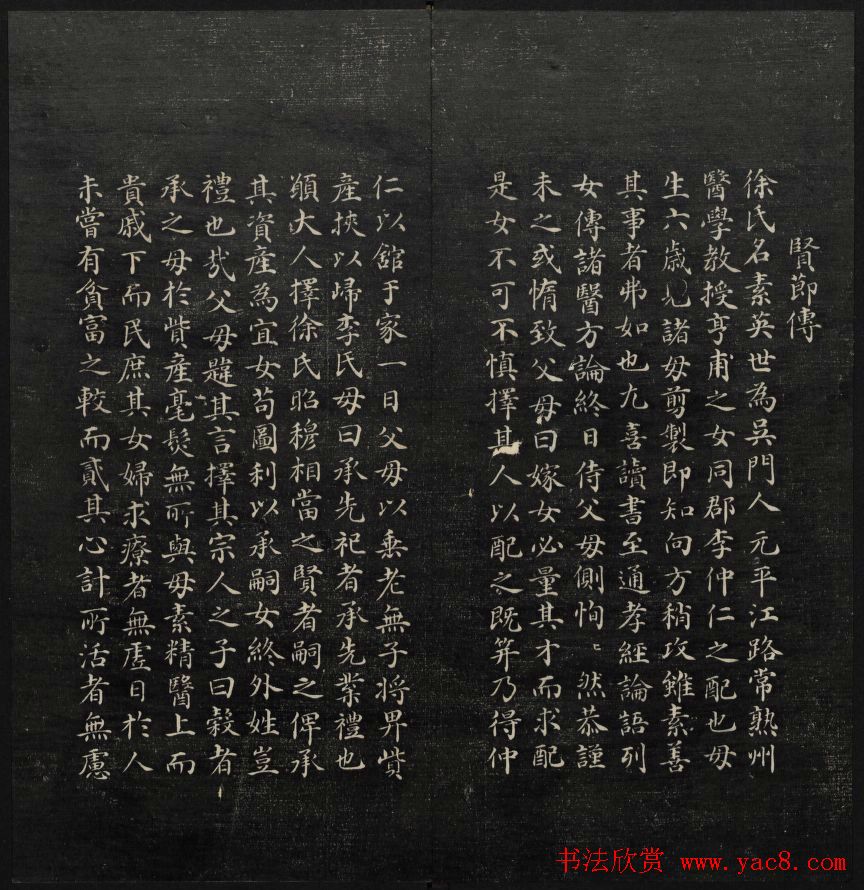 賢節傳
徐氏名素英世為吳門人元平江路常熟州
醫學教授亨甫之女同郡李仲仁之配也母
生六歲見諸母剪製即知向方稍攻雖素善
其事者弗如也尤喜讀書至通孝經論語列
女傳諸醫方論終日侍父母側恂〻然恭謹
未之或惰致父母曰嫁女必量其才而求配
是女不可不慎擇其人以配之既笄乃得仲
仁以舘于家一日父母以垂老無子將畀貲
產挾以歸李氏母曰承先祀者承先業禮也
願大人擇徐氏昭穆相當之賢者嗣之俾承
其資產為宜女苟圖利以承嗣女終外姓豈
禮也哉父母韙其言擇其宗人之子曰穀者
承之母於貲產毫髮無所與母素精醫上而
貴戚下而民庶其女婦求療者無虛日於人
未嘗有貧富之較而貳其心計所活者無慮
书法欣赏 www.yac8.com